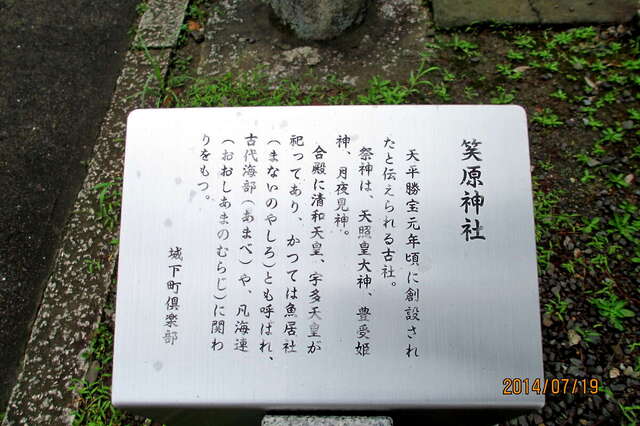 笑原神社
天平勝宝元年頃に創設され
たと伝えられる古社。
祭神は、天照皇大神、豊受姫
神、月夜見神。
合殿に清和天皇、宇多天皇が
祀ってあり、かつては魚居社
(まないのやしろ)とも呼ばれ、
古代海部(あまべ)や、凡海連
(おおしあまのむらじ)に関わ
りをもつ。
城下町倶楽部
2014/07/19